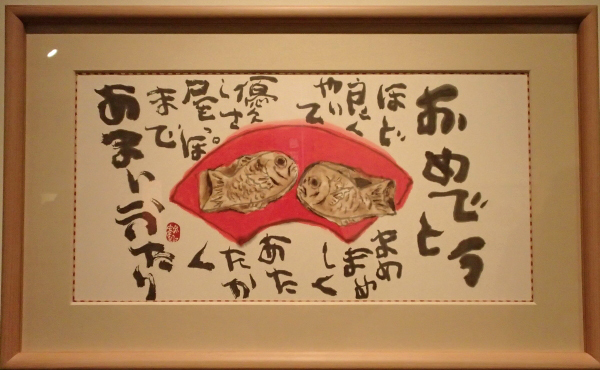 おめでとう
ほど
良く
やいて
優
しさ
尾っぽ
まで
まめ
まめ
しく
あた
たか
く
あまいふたり